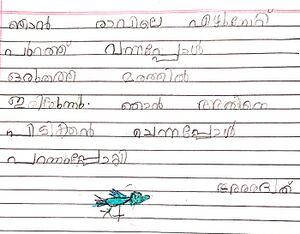 ഞാൻ രാവിലെ എഴുന്നേറ്റ്
പുറത്ത് വന്നപ്പോൾ
ഒരു തത്ത മരത്തിൽ
ഇരിക്കുന്നു. ഞാൻ അതിനെ
പിടിക്കാൻ ചെന്നപ്പോൾ
പറന്നുപ്പോയി